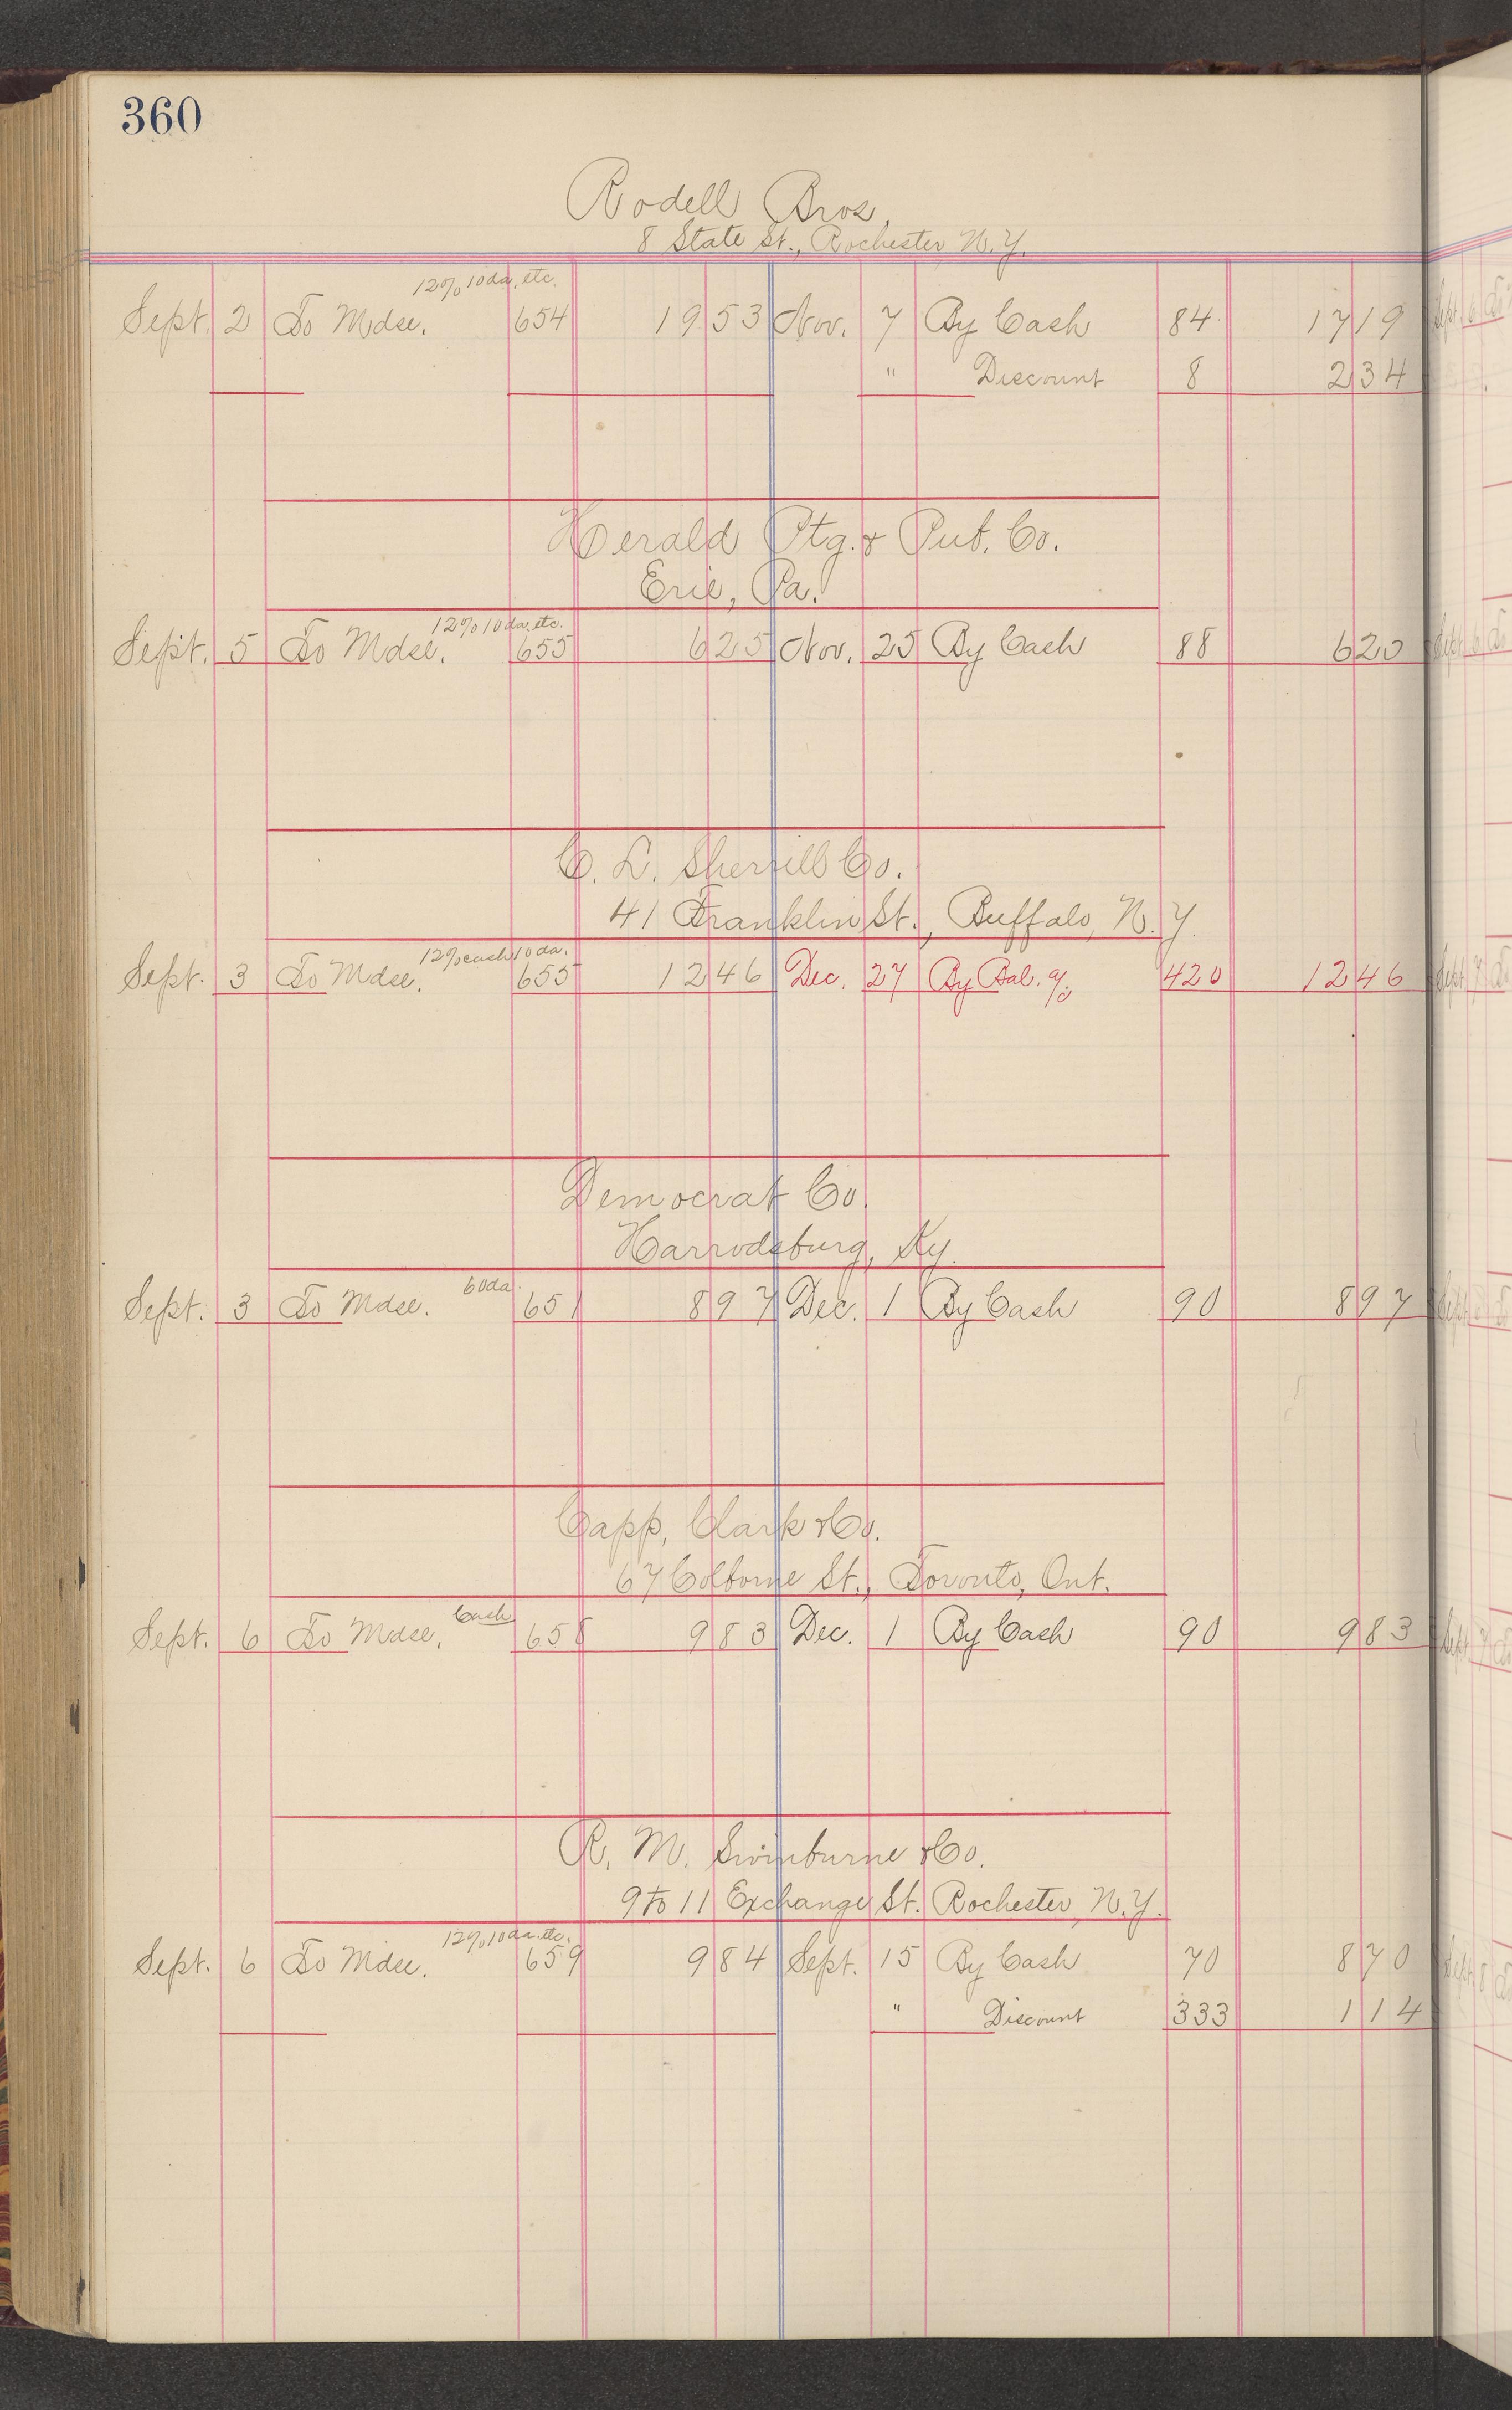 360
Rodell Bros.
8 State St., Rochester, N.Y.
12% 10 da. etc.
Sept. 2 To Mdse. 654 19 53 Nov. 7 By Cash 84 17 19
" Discount 8 2 34
Herald Ptg. & Pub. Co.
Erie, Pa.
12% 10 da. etc.
Sept. 5 To Mdse. 655 6 25 Nov. 25 By Cash 88 6 20
C. L. Sherrill Co.
41 Franklin St., Buffalo, N.Y.
12% cash 10 da.
Sept. 3 To Mdse. 655 12 46 Dec. 27 By Bal. a/c 420 12 46
Democrat Co.
Harrodsburg, Ky.
60 da.
Sept. 3 To Mdse. 651 8 97 Dec. 1 By Cash 90 8 97
Capp, Clark & Co.
67 Colborne St., Toronto, Ont.
Cash
Sept. 6 To Mdse. 658 9 83 Dec. 1 By Cash 90 9 83
R. M. Swinburne & Co.
9 to 11 Exchange St. Rochester, N.Y.
12% 10 da. etc.
Sept. 6 To Mdse. 659 9 84 Sept. 15 By Cash 70 8 70
" Discount 333 1 14